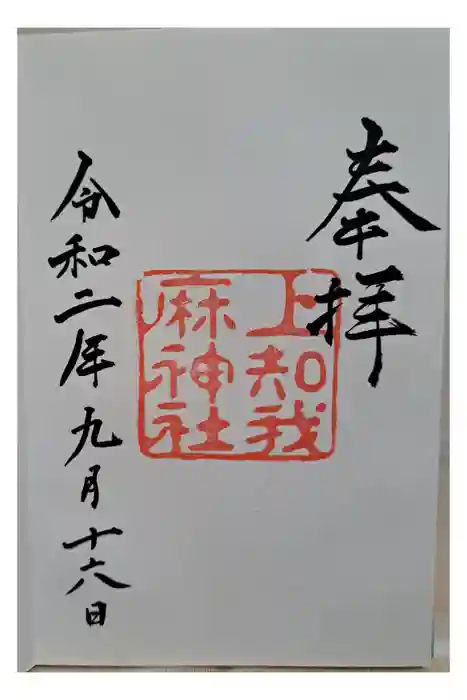 奉拝
上知我
麻神社
令和二年九月十六日